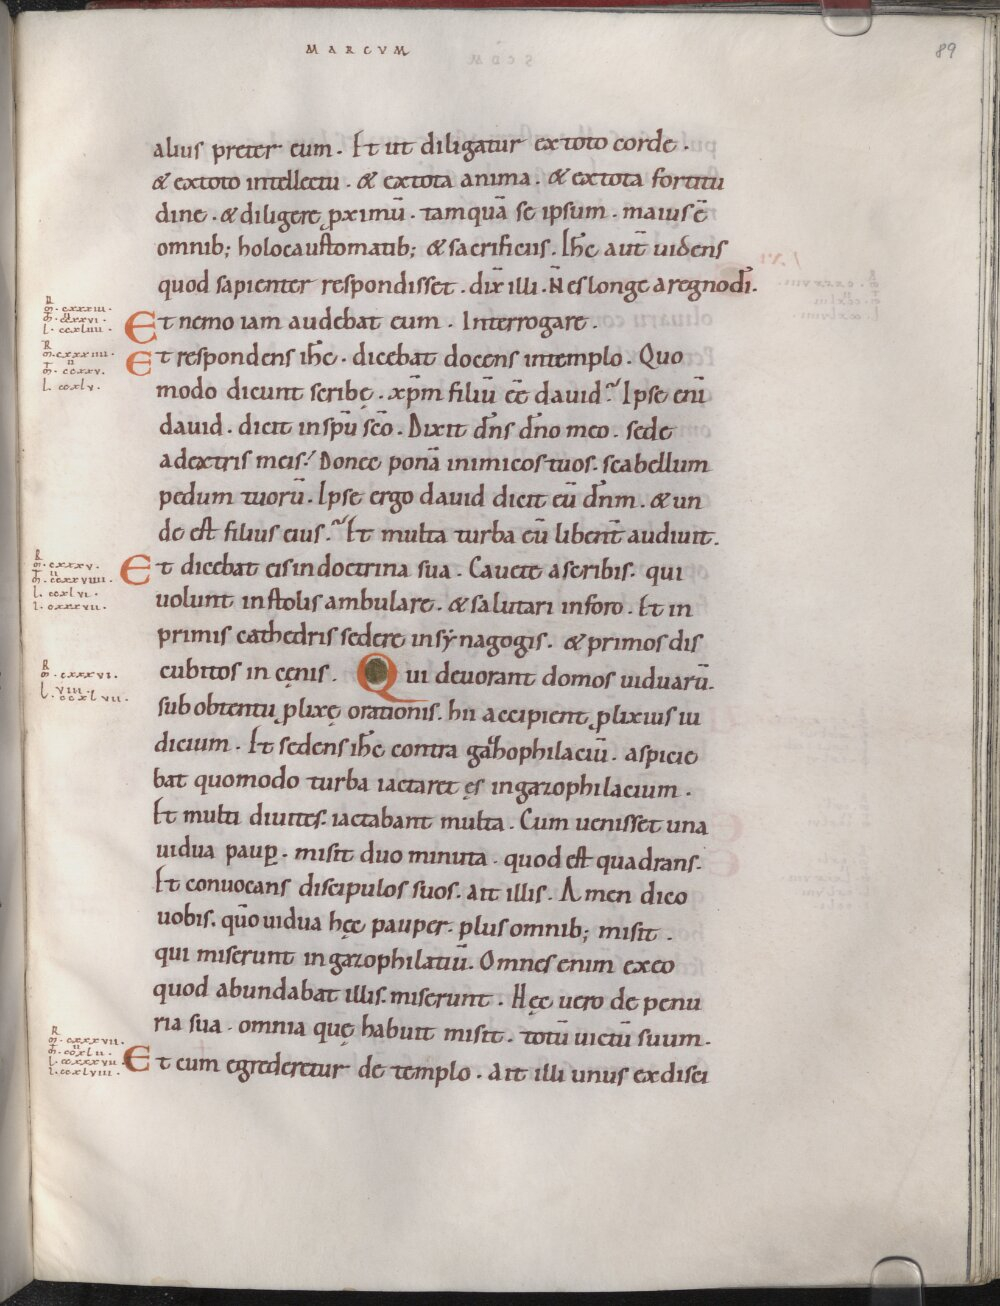 MARCVM
89
alius preter eum. Et ut diligatur ex toto corde.
& ex toto intellectu. & ex tota anima. & ex tota fortitu
dine. & diligere ꝓximū. tamquā se ipsum. maius ē
omnib; holocaustomatib; & sacrificiis. Ihc̄ aut̄ uidens
quod sapienter respondisset. dix̄ illi. N̄ es longe a regno dī.
Et nemo iam audebat eum. Interrogare.
Et respondens ihc̄. dicebat docens in templo. Quo
modo dicunt scribę. xp̄m filiū ēē dauid? Ipse eni̅
dauid. dicit in sp̄u sc̄o. Dixit dn̄s dn̄o meo. sede
a dextris meis. Donec ponā inimicos tuos. scabellum
pedum tuorū. Ipse ergo dauid dicit eū dn̄m. & un
de est filius eius? Et multa turba eū libent̄ audiuit.
Et dicebat eis in doctrina sua. Cauete a scribis. qui
uolunt in stolis ambulare. & salutari in foro. Et in
primis cathedris sedere in synagogis. & primos dis
cubitos in cęnis. Qui deuorant domos uiduarū.
sub obtentu ꝓlixę orationis. hii accipient ꝓlixius iu
dicium. Et sedens ihc̄ contra gazophilaciū. aspicie
bat quomodo turba iactaret ęs in gazophilacium.
Et multi diuites. iactabant multa. Cum uenisset una
uidua paup̲. misit duo minuta. quod est quadrans.
Et conuocans discipulos suos. ait illis. Amen dico
uobis. qūo uidua hęc pauper. plus omnib; misit.
qui miserunt in gazophilatiū. Omnes enim ex eo
quod abundabat illis. miserunt. Hęc uero de penu
ria sua. omnia quę habuit misit. totū uictū suum.
Et cum egrederetur de templo. Ait illi unus ex disci